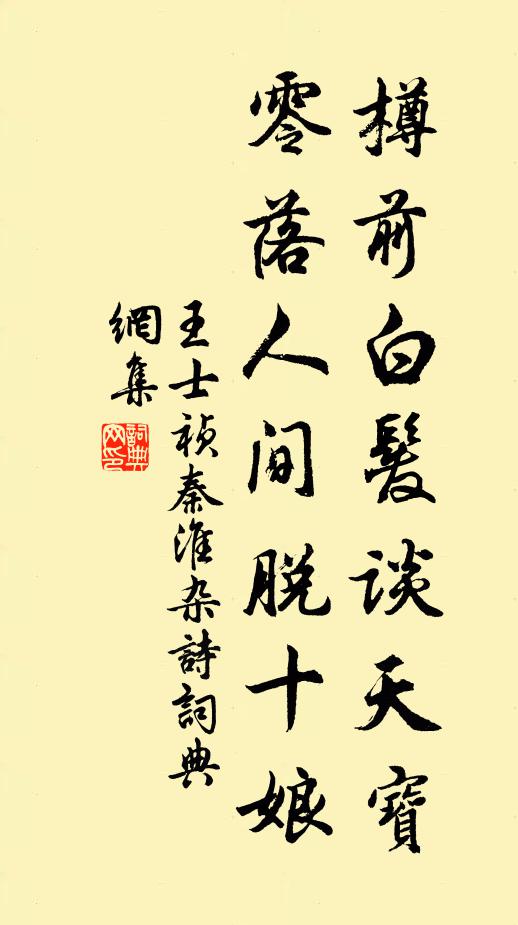 樽前白髮談天寶
零落人间脱十娘
王士禎秦淮杂詩詞典
網集
詞典网印